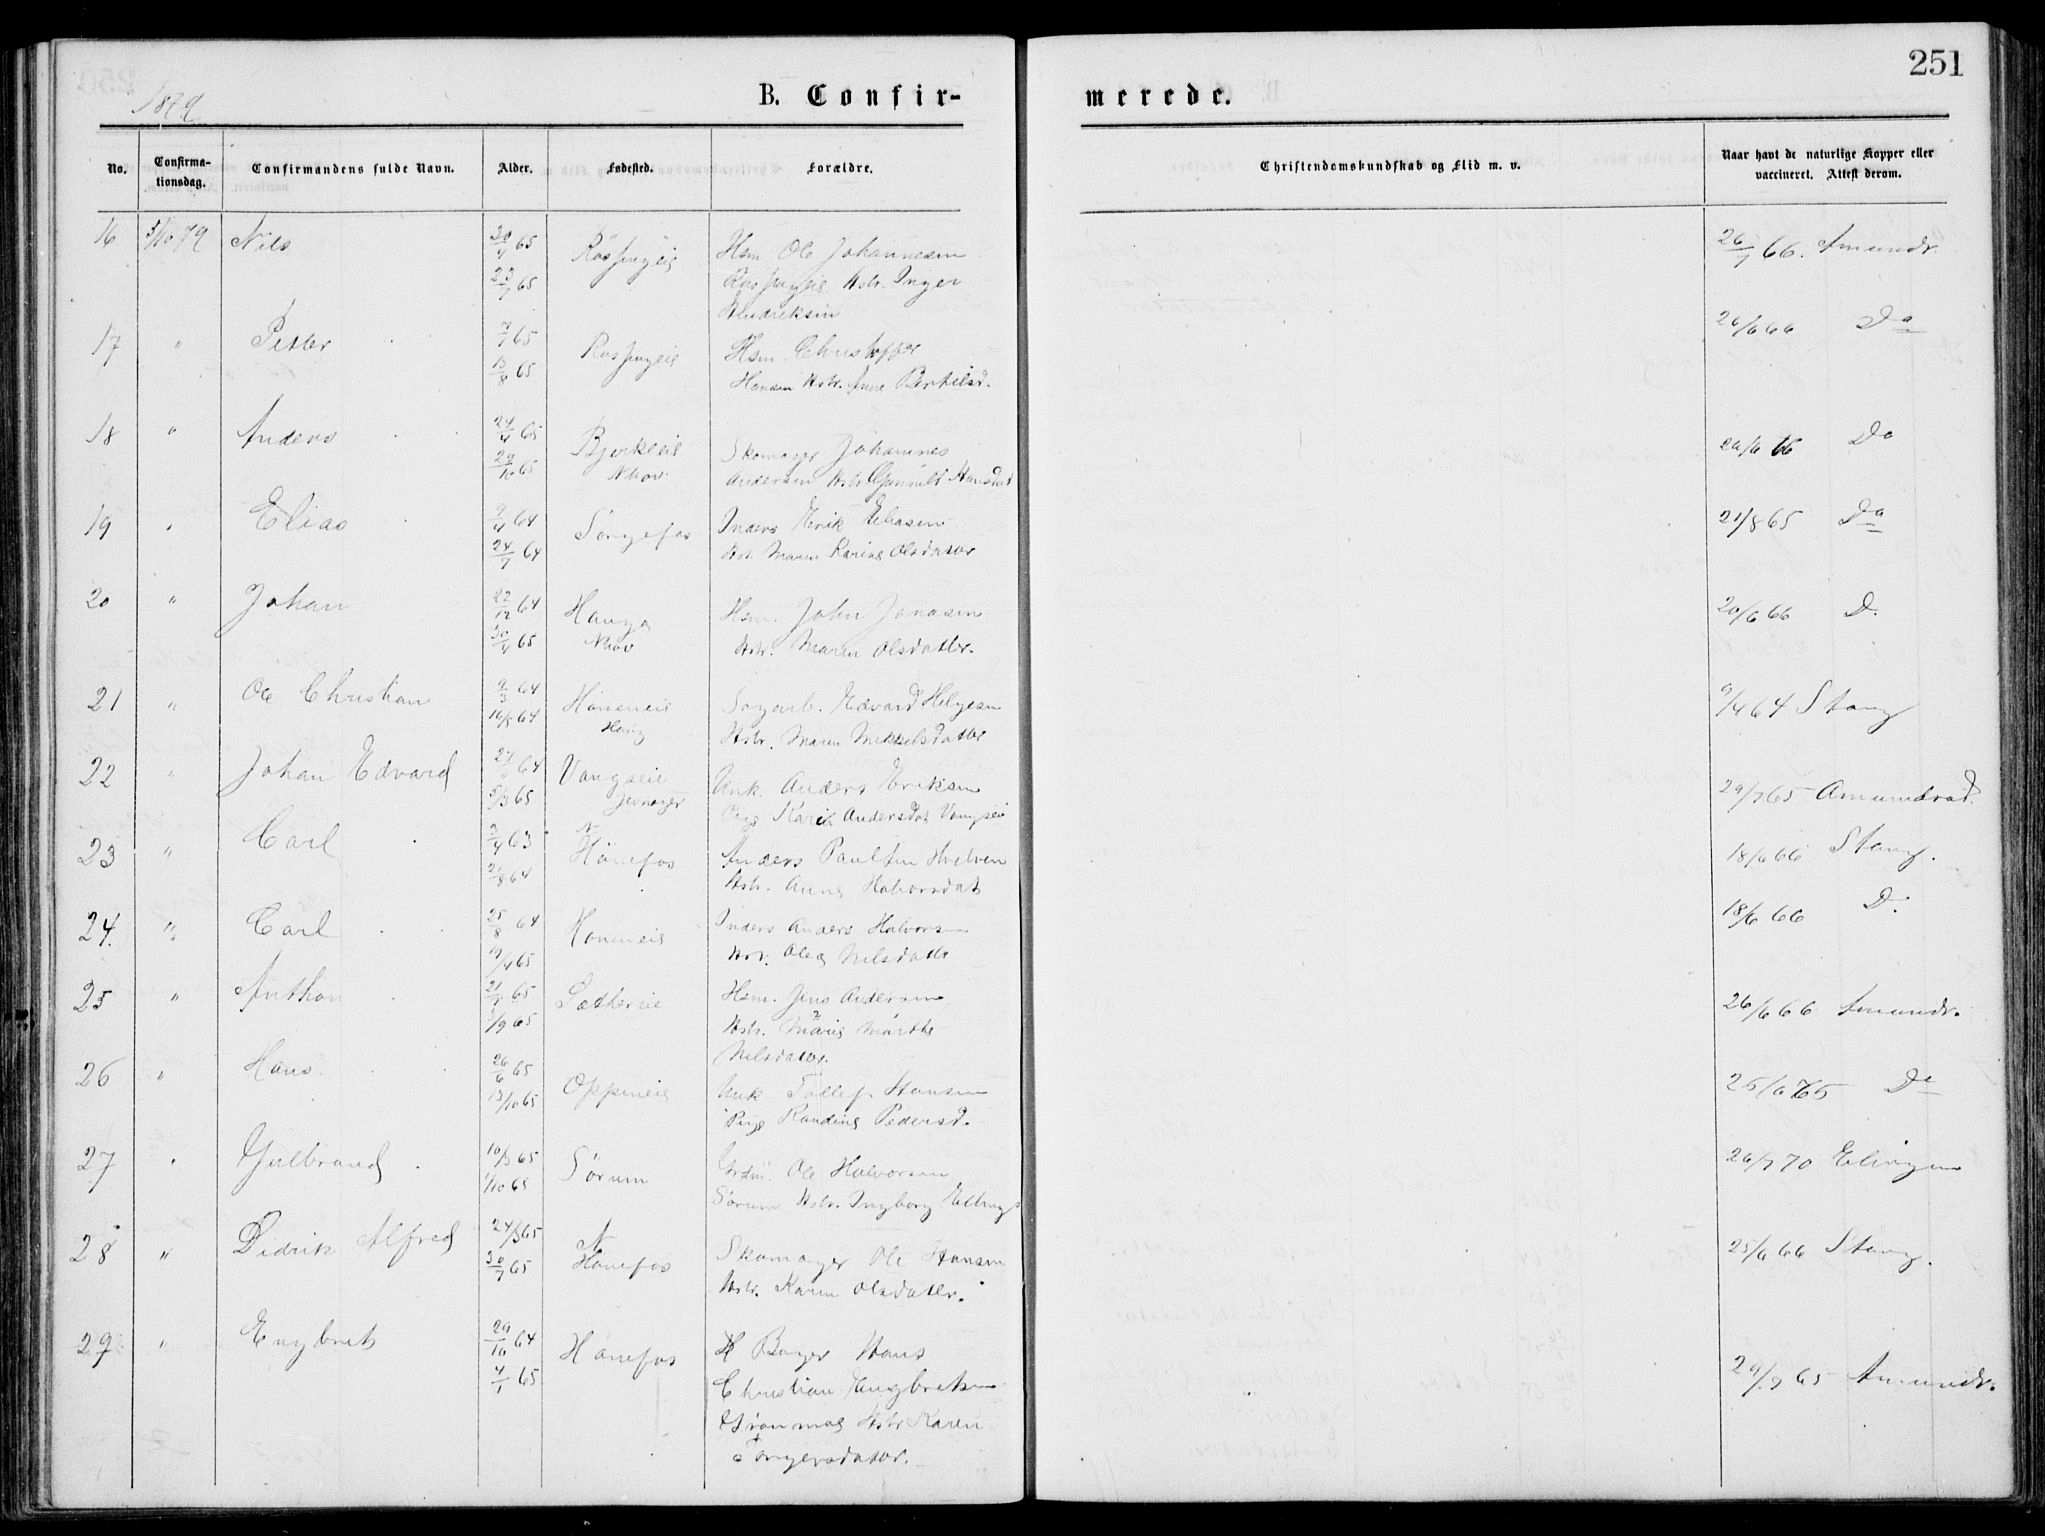 1879
B. Confir-
merede.
251
No.
Confirma-
tionsdag.
Confirmandens fulde Navn.
Alder.
Fødested.
Forældre.
Christendomskundskab og Flid m. v.
Naar havt de naturlige Kopper eller
vaccineret. Attest derom.
16 5/10 79 Nils 65 Hsm. Ole Johannesen 66. Amundr.
65 Hstr. Inger
17 " Petter 65 Hsm. Christoffer 26/6 66 Do
13/8 65 Hansen Hstr. Anne Bertilsd.
18 " Anders 24/4 65 Bjerkeeie Skomager Johannes 66 Do
29/10 65 Nhov Andersen Hstr. Gunnild Hansdat
19 " Elias 9/4 64 Inders Erik Eliasen 21/8 65 Do
24/7 64 Hstr. Maren Karine Olsdatter
20 " Johan 22/12 64 Hsm. John Jonasen 20/6 66 D.
30/4 65 Nhov Hstr. Maren Olsdatter.
21 " Ole Christian 9/3 64 Höneneie Sagarb. Edvard Helgesen 9/4 64 Stang
16/5 64 Hstr. Maren Mikkelsdatter
22 " Johan Edvard 64 Vangseie Unk. Anders Eriksen 29/7 65 Amundrød.
5/3 65 Jevnager Pige Kari Andersdat Vangseie
23 " Carl 3/4 63 N Hönefos Anders Paulsen Hvelven 18/6 66 Stang.
21/8 64 Hstr. Anne Halvorsdat
24. " Carl 25/8 64 Höneneie Inders Anders Halvorsen 18/6 66 D.
19/4 65 Hstr. Olea Nilsdatter
25 " Anthon 65 Sættereie Hsm. Jens Andersen 26/6 66 Amundr.
9 65 Hstr. Marie Marthe
Nilsdatter.
26 " Hans 26/6 65 Oppeneie Unk Tollef Hansen 65 Do
13/10 65 Pige Randine Pedersd.
27 " Gulbrand 10/3 65 Sørum Grdm. Ole Halvorsen 26/7 70 Ellingsen
1/10 65 Sørum Hstr. Ingborg
28 " Didrik Alfred 24/3 65 N Skomager Ole Hansen 25/6 66 Stang.
30/7 65 Hönefos Hstr. Karen Olsdatter.
29 " Engbret 29/10 64 Hönefos Hans 65 Amundr.
4/1 65 Christian Engbretsen
Hstr Karen